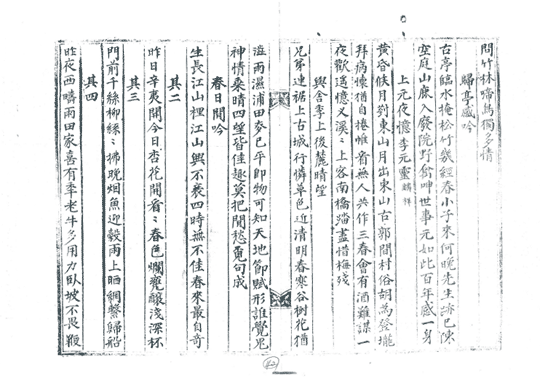 問竹林啼鳥獨多情
歸亭感吟
古亭臨水掩松竹幾經春小子來何晚先生跡已陳
空庭山鹿入廢院野禽呻世事元如此百年感一身
上元夜憶李元靈麟祥
黃昏候月到東山月出東山古郭間村俗胡為登壠
拜病懷猶自捲帷看無人共作三春會有酒難謀一
夜歡遥憶又溪〻上客南橋踏盡惜梅殘
與舍季上後麓晴望
兄弟連裾上古城行憐草色近清明春寒谷樹花猶
澁雨濕浦田麥已平卽物可知天地節賦形誰覺足
神情桑晴四望皆佳趣莫把閒愁覔句成
春日閒吟
生長江山裡江山興不衰四時無不佳春來最自奇
其二
昨日辛夷開今日杏花開看〻春色爛甕釀淺深杯
其三
門前千絲柳綠〻拂晚烟魚迎穀雨上晒網繫歸船
其四
昨夜西疇雨田家喜有季老牛多用力臥坡不畏鞭